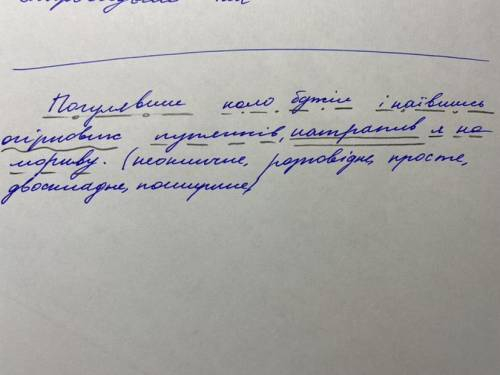 Погулявши коло бджіл і наївшись
огіркових пуп'янків, натрапив я на
моркву. (неокличне, розповідне, просте,
двоскладне, поширене,